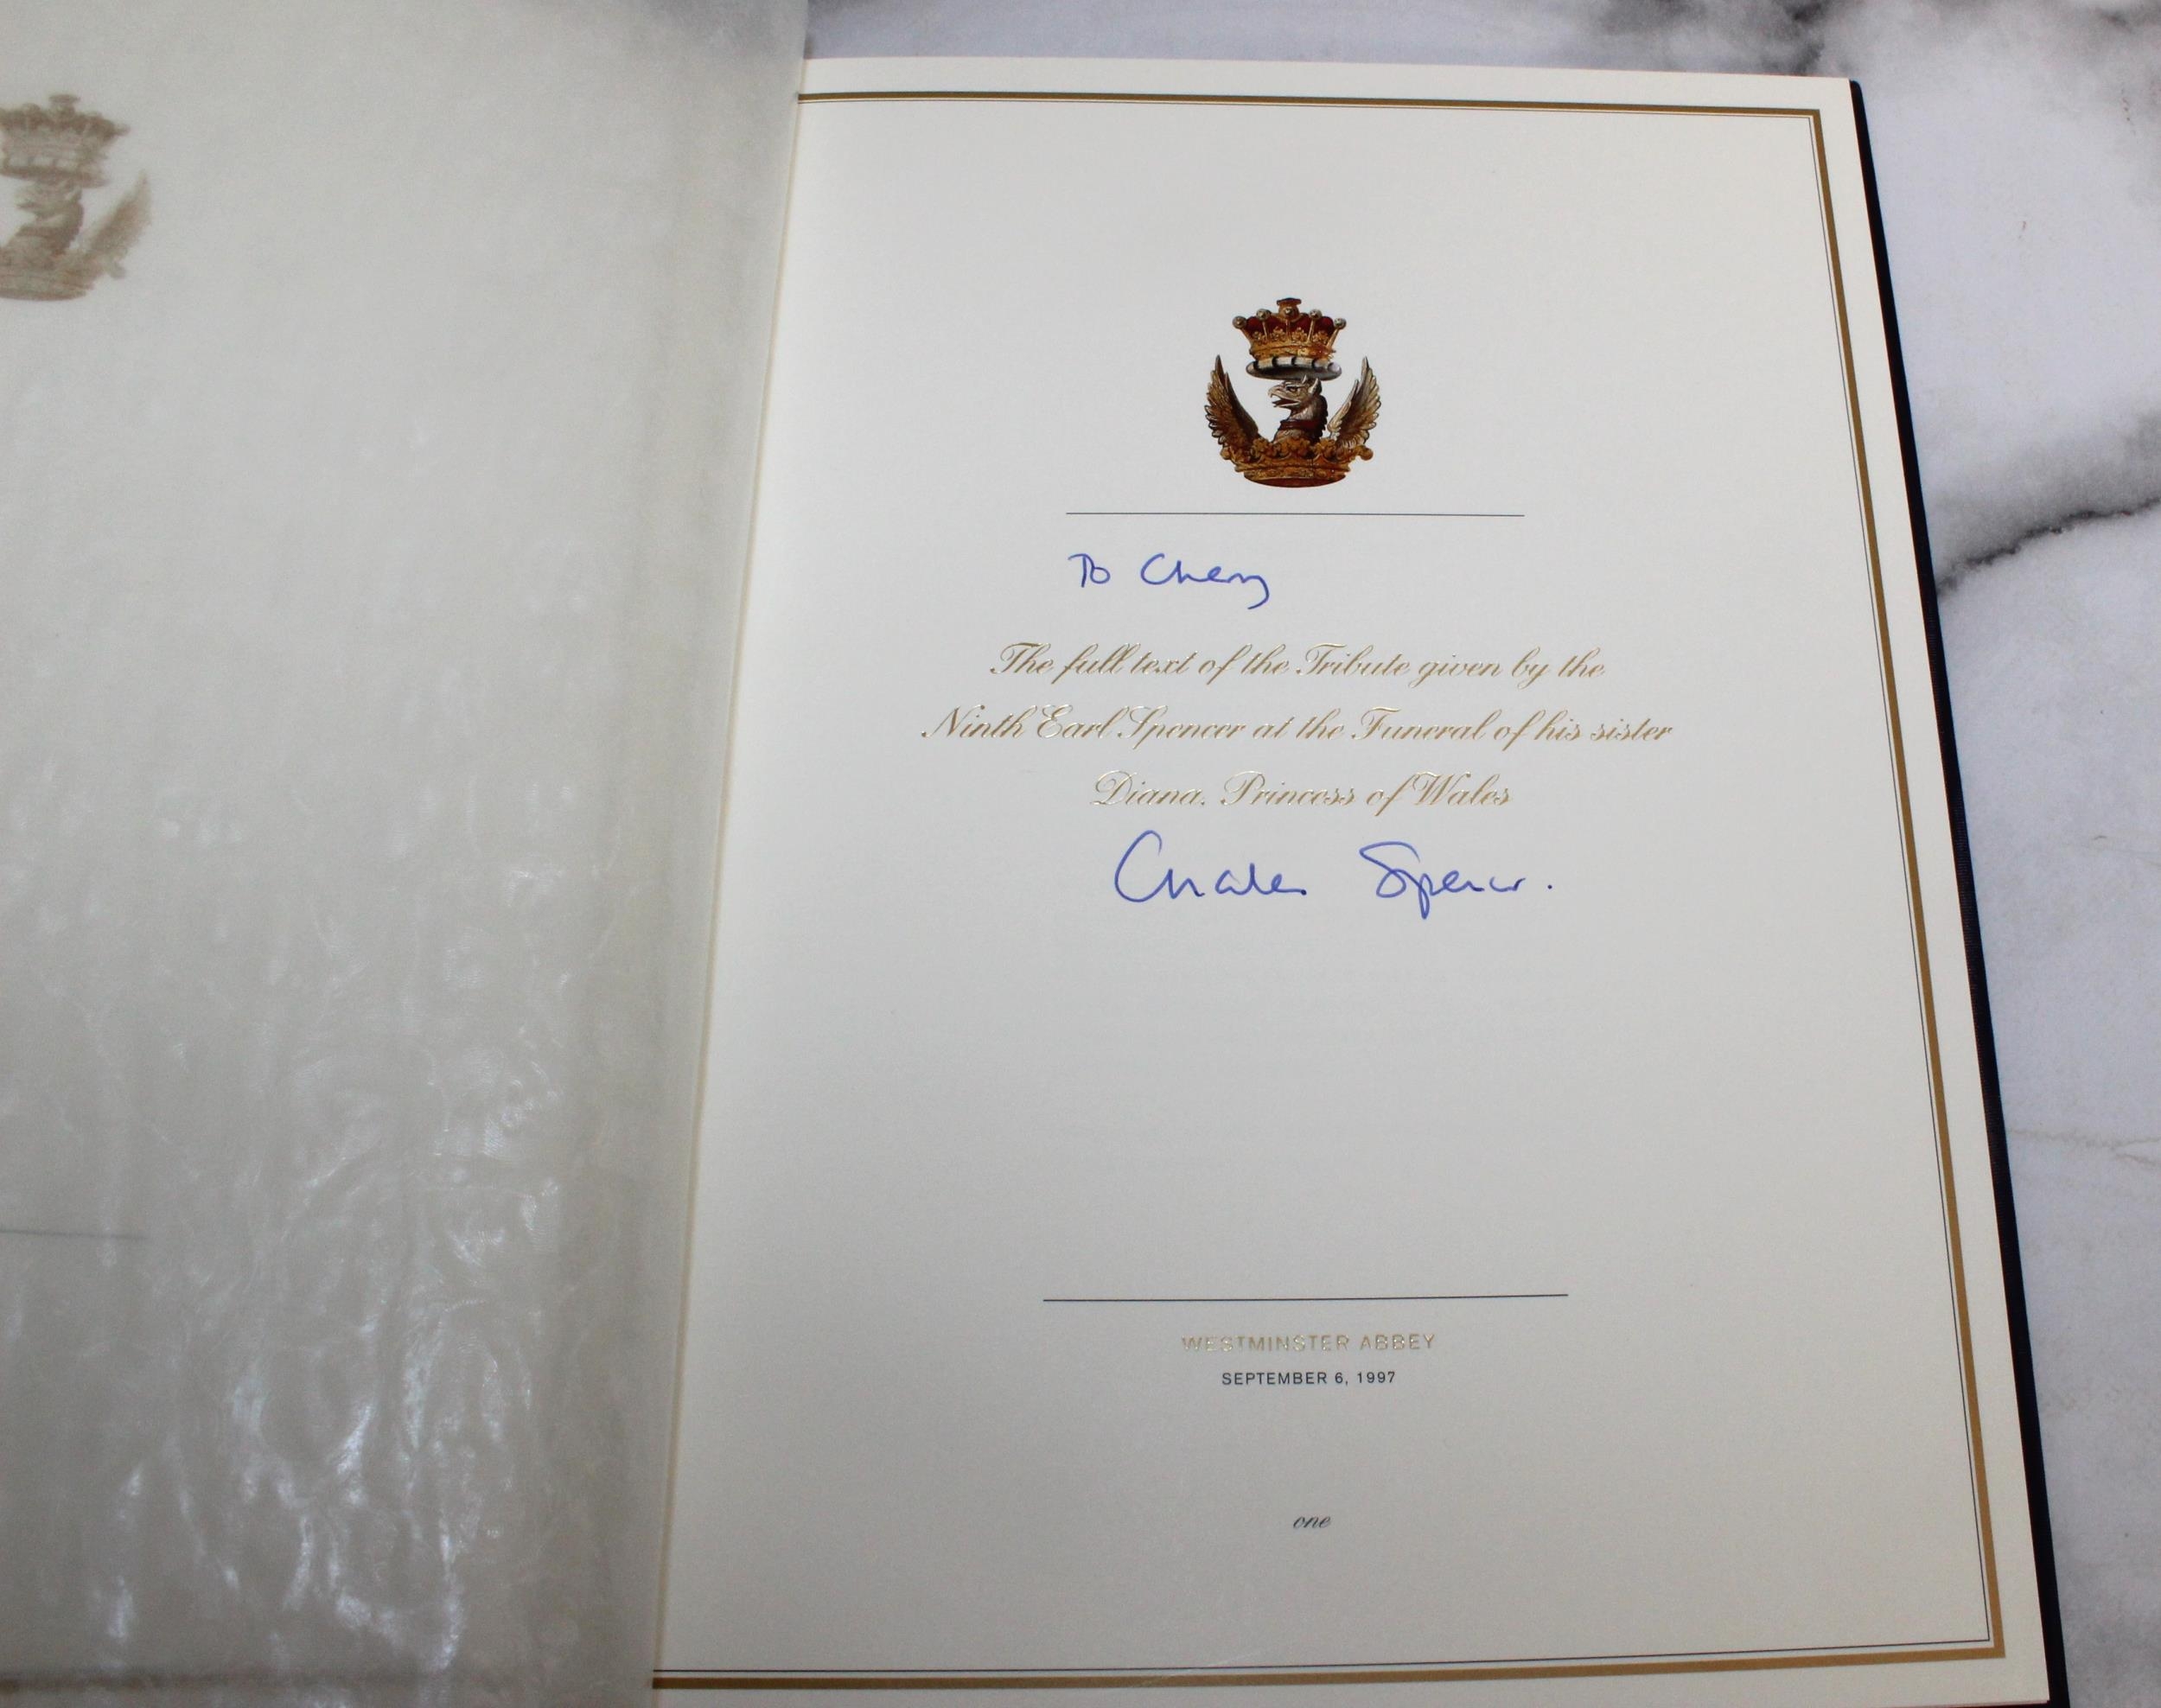 To Cherry
The full text of the Tribute given by the
Ninth Earl Spencer at the Funeral of his sister
Diana, Princess of Wales
Charles Spencer.
WESTMINSTER ABBEY
SEPTEMBER 6, 1997
one